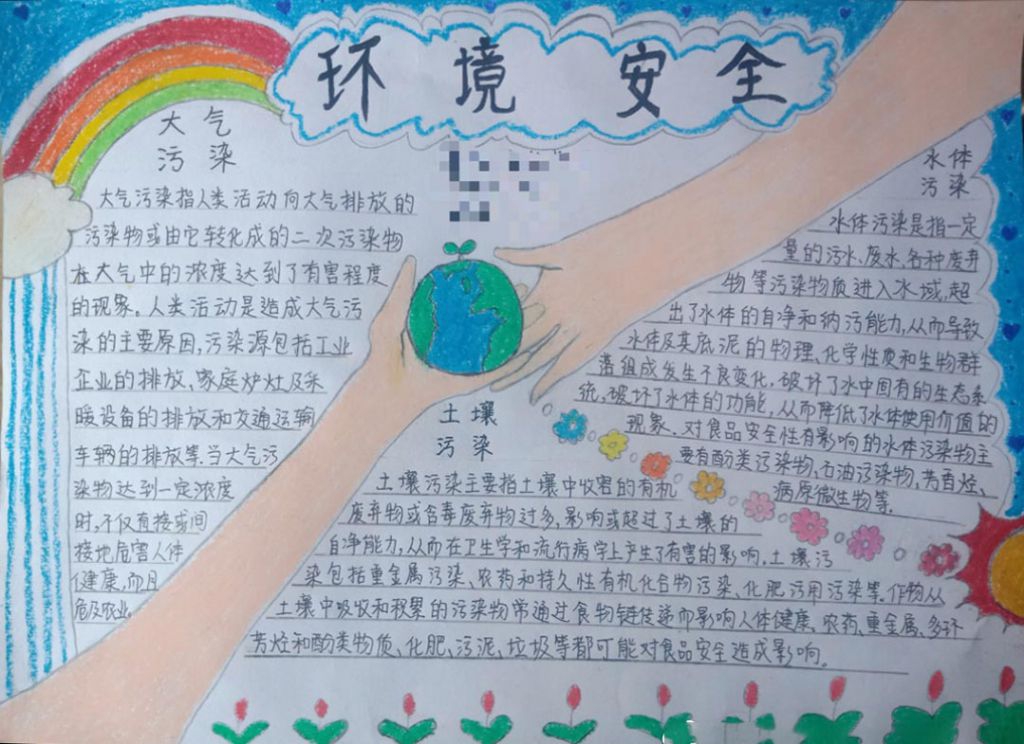 环境安全
大气
污染
大气污染指人类活动向大气排放的
污染物或由它转化成的二次污染物
在大气中的浓度达到了有害程度
的现象。人类活动是造成大气污
染的主要原因,污染源包括工业
企业的排放、家庭炉灶及采
暖设备的排放和交通运输
车辆的排放等。当大气污
染物达到一定浓度
时,不仅直接或间
接地危害人体
健康,而且
危及农业。
水体
污染
水体污染是指一定
量的污水、废水、各种废弃
物等污染物质进入水域,超
出了水体的自净和纳污能力,从而导致
水体及其底泥的物理、化学性质和生物群
落组成发生不良变化,破坏了水中固有的生态系
统,破坏了水体的功能,从而降低了水体使用价值的
现象、对食品安全性有影响的水体污染物主
要有酚类污染物,石油污染物,芳香烃、
病原微生物等.
土壤
污染
土壤污染主要指土壤中收害的有机
废弃物或含毒废弃物过多,影响或超过了土壤的
自净能力,从而在卫生学和流行病学上产生了有害的影响,土壤污
染包括重金属污染、农药和持久性有机化合物污染、化肥污用污染等.作物从
土壤中吸收和积累的污染物常通过食物链传递而影响人体健康、农药、重金属、多环
芳烃和酚类物质、化肥、污泥、垃圾等都可能对食品安全造成影响。